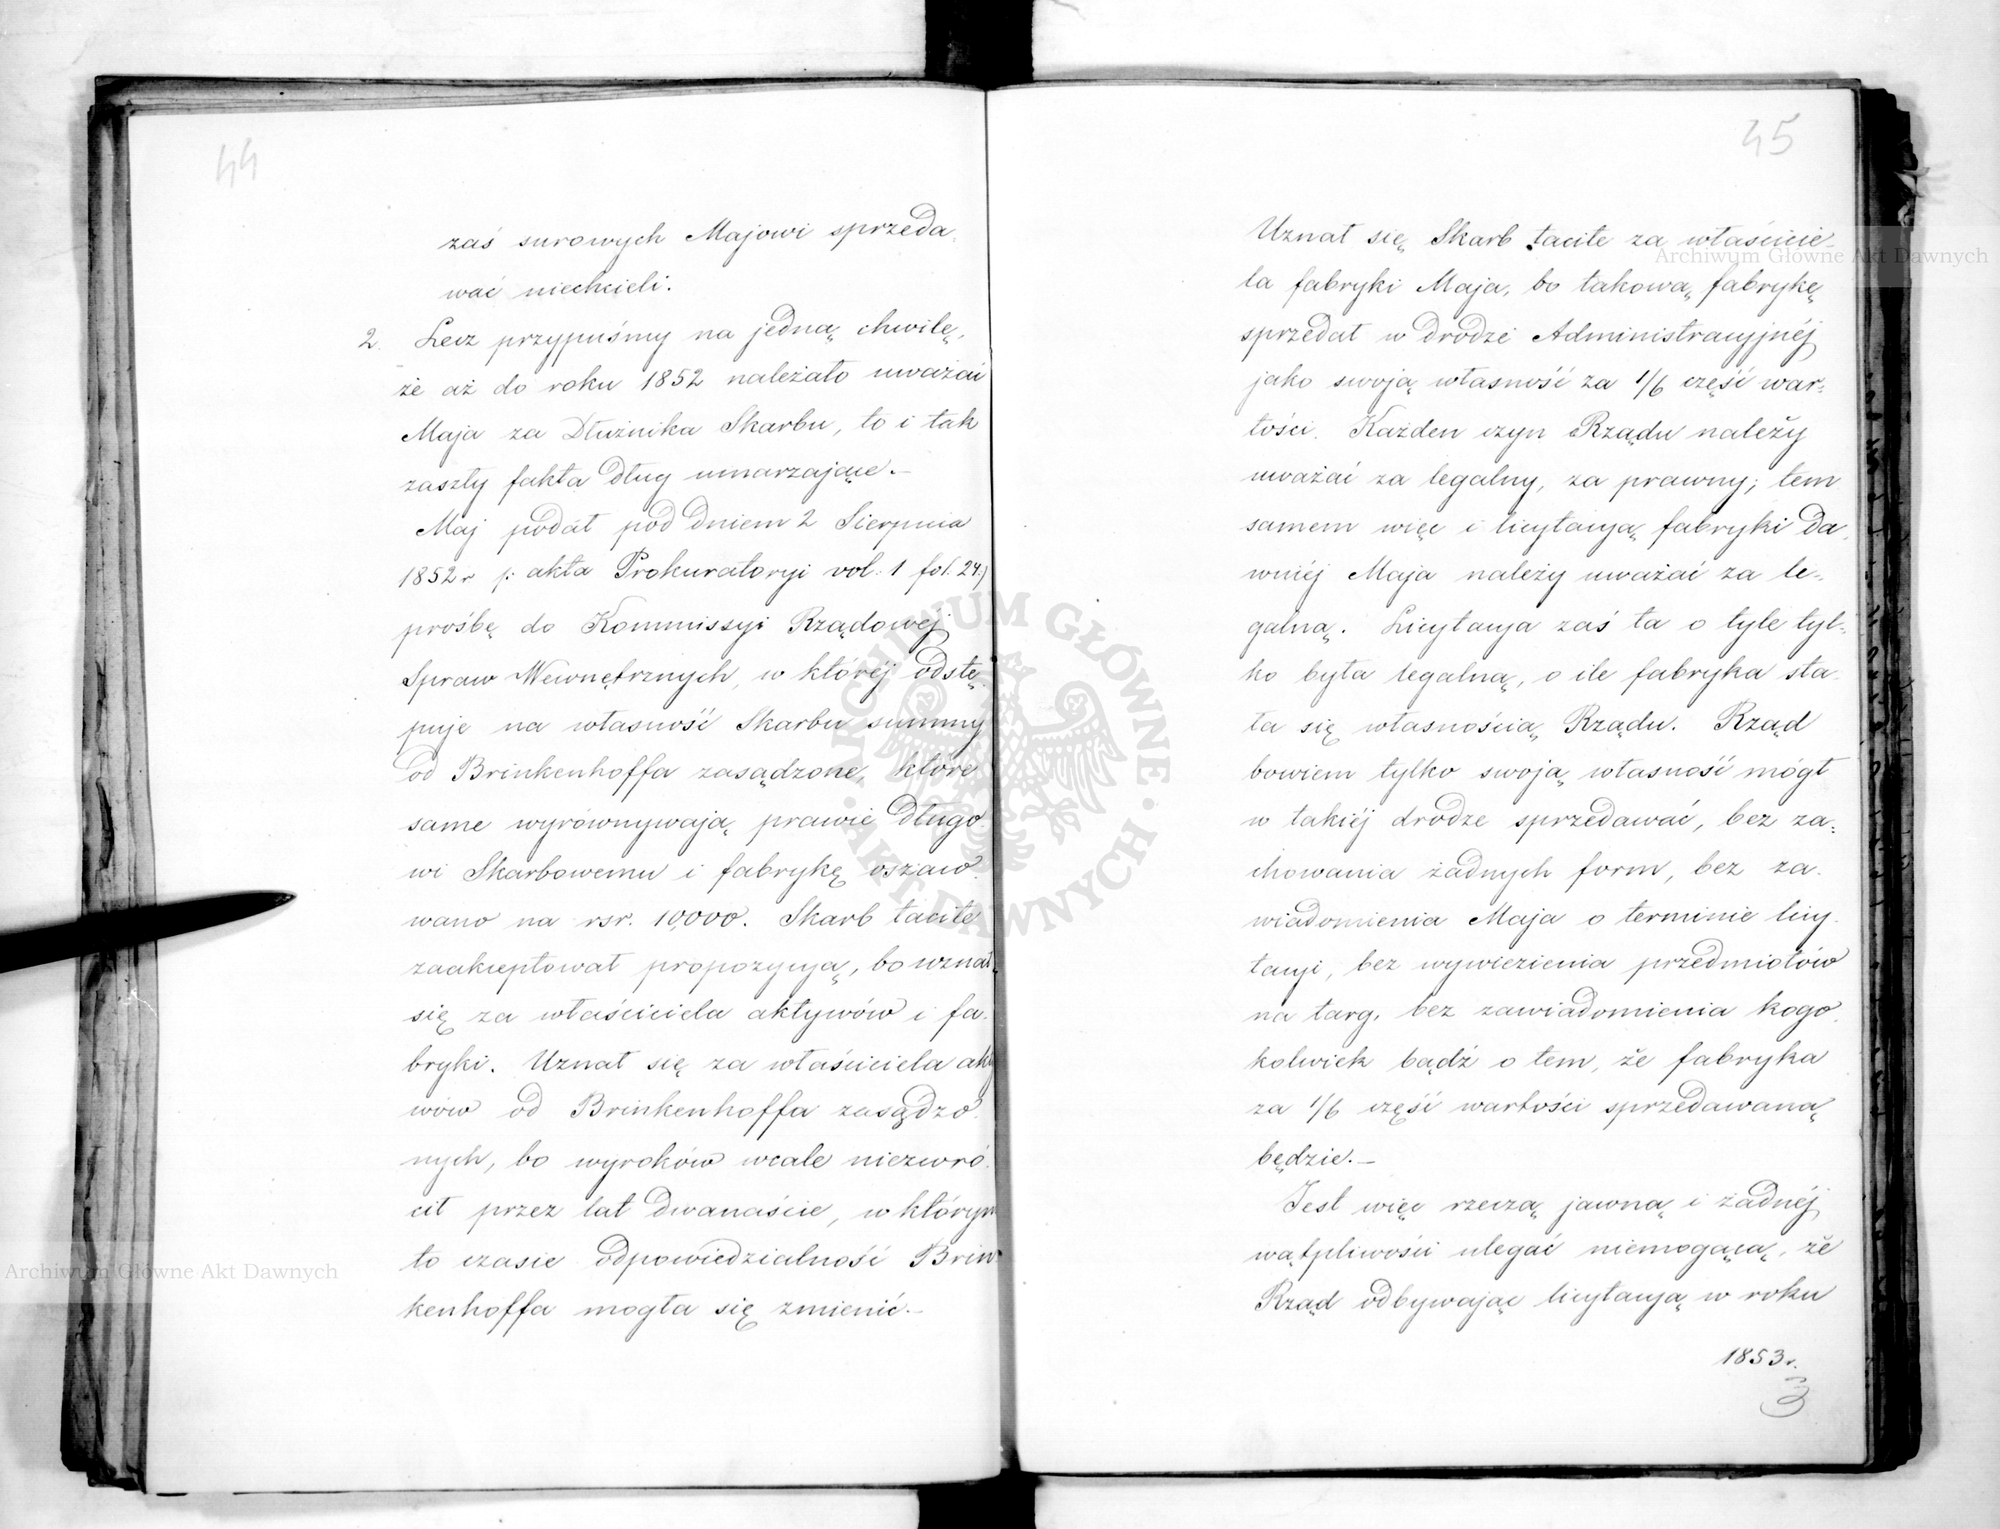 44
zaś surowych Majowi sprzeda-
wać niechcieli.
2. Lecz przypuśmy na jedną chwilę,
że aż do roku 1852 należało uważać
Maja za Dłużnika Skarbu, to i tak
zaszły fakta Dług umarzające.—
Maj podał pod Dniem 2 Sierpnia
1852 r /: akta Prokuratoryi vol: 1 fol. 24:/
prośbę do Kommissyi Rządowéj
Spraw Wewnętrznych, w któréj odstę-
puje na własność Skarbu summy
od Brinkenhoffa zasądzone, które
same wyrównywają prawie Długo-
wi Skarbowemu i fabrykę oszaco-
wano na rsr. 10,000. Skarb tacite
zaakceptował propozycyą, bo uznał
się za właściciela aktywów i fa-
bryki. Uznał się za właściciela akty
wów od Brinkenhoffa zasądzo-
nych, bo wyroków wcale niezwró-
cił przez lat Dwanaście, w którym
to czasie odpowiedzialność Brin-
kenhoffa mogła się zmienić.—
45
Uznał się Skarb tacite za właścicie-
la fabryki Maja, bo takową fabrykę
sprzedał w drodze Administracyjnéj
jako swoją własność za 1/6 część war-
tości. Każden czyn Rządu należy
uważać za legalny, za prawny; tem
samem więc i licytacyą fabryki da-
wniéj Maja należy uważać za le-
galną. Licytacya zaś ta o tyle tyl-
ko była legalną, o ile fabryka sta-
ła się własnością Rządu. Rząd
bowiem tylko swoją własność mógł
w takiéj drodze sprzedawać, bez za-
chowania żadnych form, bez za-
wiadomienia Maja o terminie licy-
tacyi, bez wywiezienia przedmiotów
na targ, bez zawiadomienia kogo-
kolwiek bądź o tem, że fabryka
za 1/6 część wartości sprzedawaną
będzie.—
Jest więc rzeczą jawną i żadnéj
wątpliwości ulegać niemogącą, że
Rząd odbywając licytacyą w roku
1853 r.
3
Archiwum Główne Akt Dawnych
Archiwum Główne Akt Dawnych
ARCHIWUM GŁÓWNE · AKT DAWNYCH ·